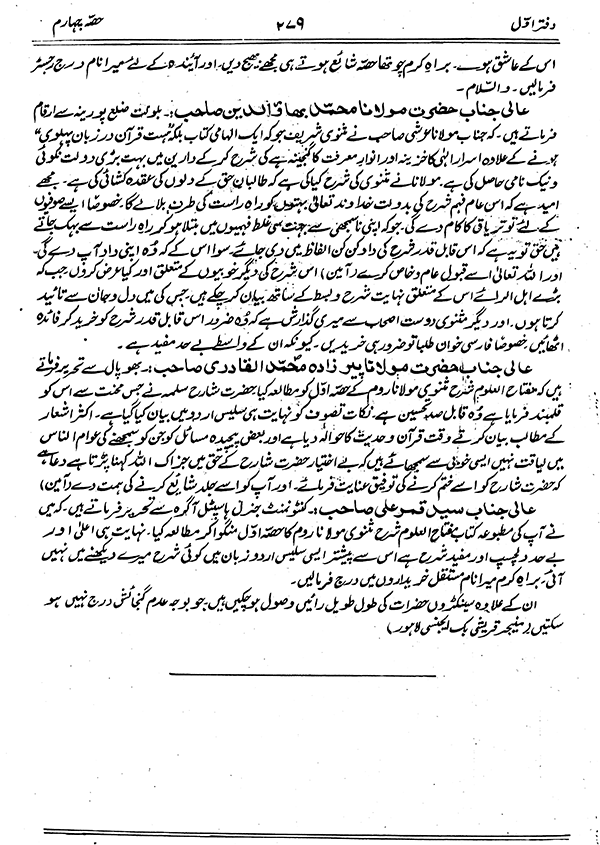 دفتر اوّل ۲۷۹ حصّہ چہارم
اس کے عاشق ہوں۔ براہِ کرم چوتھا حصّہ شائع ہوتے ہی مجھے بھیج دیں۔ اور آیندہ کے لئے میرا نام درج رجسٹر
فرمالیں۔ والسّلام۔
عالی جناب حضرت مولانا محمّد بھاؤالدین صاحب:۔ بلونت ضلع پورنیہ سے ارقام
فرماتے ہیں۔ کہ جناب مولانا عرشی صاحب نے مثنوی شریف جو کہ ایک الہامی کتاب بلکہ "ہست قرآن در زبان پہلوی"
ہونے کے علاوہ اسرارِ الٰہی کا خزینہ اور انوارِ معرفت کا گنجینہ ہے کی شرح کر کے دارین میں بہت بڑی دولت نکوئی
و نیک نامی حاصل کی ہے۔ مولانا نے مثنوی کی شرح کیا کی ہے کہ طالبانِ حق کے دلوں کی عقدہ کشائی کی ہے۔ مجھے
امید ہے کہ اس عام فہم شرح کی بدولت خداوند تعالیٰ بہتوں کو راہ راست کی طرف بلائے گا۔ خصوصًا ایسے صوفیوں
کے لئے تو تریاق کا کام دے گی۔ جو کہ اپنی ناسمجھی سے بہت سی غلط فہمیوں میں مبتلا ہو کر راہِ راست سے بہک جاتے
ہیں حق تو یہ ہے کہ اس قابل قدر شرح کی داد کن کن الفاظ میں دی جائے۔ سوا اس کے کہ وُہ اپنی داد آپ دے گی۔
اور اللہ تعالیٰ اسے قبولِ عام و خاص کرے (آمین) اس شرح کی دیگر خوبیوں کے متعلق اور کیا عرض کروں جب کہ
بڑے اہل الرائے اس کے متعلق نہایت شرح و بسط کے ساتھ بیان کر چکے ہیں۔ جس کی میں دل و جان سے تائید
کرتا ہوں۔ اور دیگر مثنوی دوست اصحاب سے میری گذارش ہے کہ وُہ ضرور اس قابل قدر شرح کو خرید کر فائدہ
اٹھائیں خصوصًا فارسی خوان طلبا تو ضرور ہی خریدیں۔ کیونکہ ان کے واسطے بے حد مفید ہے۔
عالی جناب حضرت مولانا پیر زادہ محمّد القادری صاحب:۔ بھوپال سے تحریر فرماتے
ہیں کہ مفتاح العلوم شرح مثنوی مولانا روم کے حصّہ اوّل کو مطالعہ کیا حضرت شارح سلمہ نے جس محنت سے اس کو
قلمبند فرمایا ہے وُہ قابل صد تحسین ہے۔ نکات تصوف کو نہایت ہی سلیس اردو میں بیان کیا گیا ہے۔ اکثر اشعار
کے مطالب بیان کرتے وقت قرآن و حدیث کا حوالہ دیا ہے اور بعض پیچیدہ مسائل کو جن کو سمجھنے کی عوام الناس
میں لیاقت نہیں ایسی خوبی سے سمجھاتے ہیں کہ بے اختیار حضرت شارح کے حق میں جزاک اللہ کہنا پڑتا ہے دعا ہے
کہ حضرت شارح کو اسے ختم کرنے کی توفیق عنایت فرمائے۔ اور آپ کو اسے جلد شائع کرنے کی ہمت دے (آمین)
عالی جناب سید قمر علی صاحب:۔ کنٹونمنٹ جنرل ہاسپٹل آگرہ سے تحریر فرماتے ہیں۔ کہ میں
نے آپ کی مطبوعہ کتاب مفتاح العلوم شرح مثنوی مولانا روم کا حصّہ اوّل منگوا کر مطالعہ کیا۔ نہایت ہی اعلیٰ اور
بے حد دلچسپ اور مفید شرح ہے اس سے پیشتر ایسی سلیس اردو زبان میں کوئی شرح میرے دیکھنے میں نہیں
آئی۔ براہِ کرم میرا نام مستقل خریداروں میں درج فرمالیں۔
ان کے علاوہ سینکڑوں حضرات کی طول طویل رائیں وصول ہو چکیں ہیں۔ جو بوجہ عدم گنجائش درج نہیں ہو
سکتیں (منیجر قریشی بک ایجنسی لاہور)